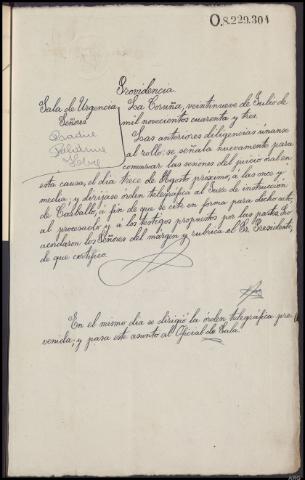 O.8.229.301
Providencia
Sala de Urgencia
Señores
La Coruña, veintinueve de Julio de
mil novecientos cuarenta y tres.
Las anteriores diligencias únanse
al rollo; se señala nuevamente para
comenzar las sesiones del juicio oral en
esta causa, el día trece de Agosto próximo, a las once y
media, y dirijase orden telegráfica al Juez de instrucción
de Carballo, a fin de que se cite en forma para dicho acto,
al procesado y a los testigos propuestos por las partes. Lo
acordaron los Señores del margen y rubrica el Sr. Presidente,
de que certifico.
En el mismo día se dirigió la orden telegráfica pre
venida; y para este asunto al Oficial de Sala.